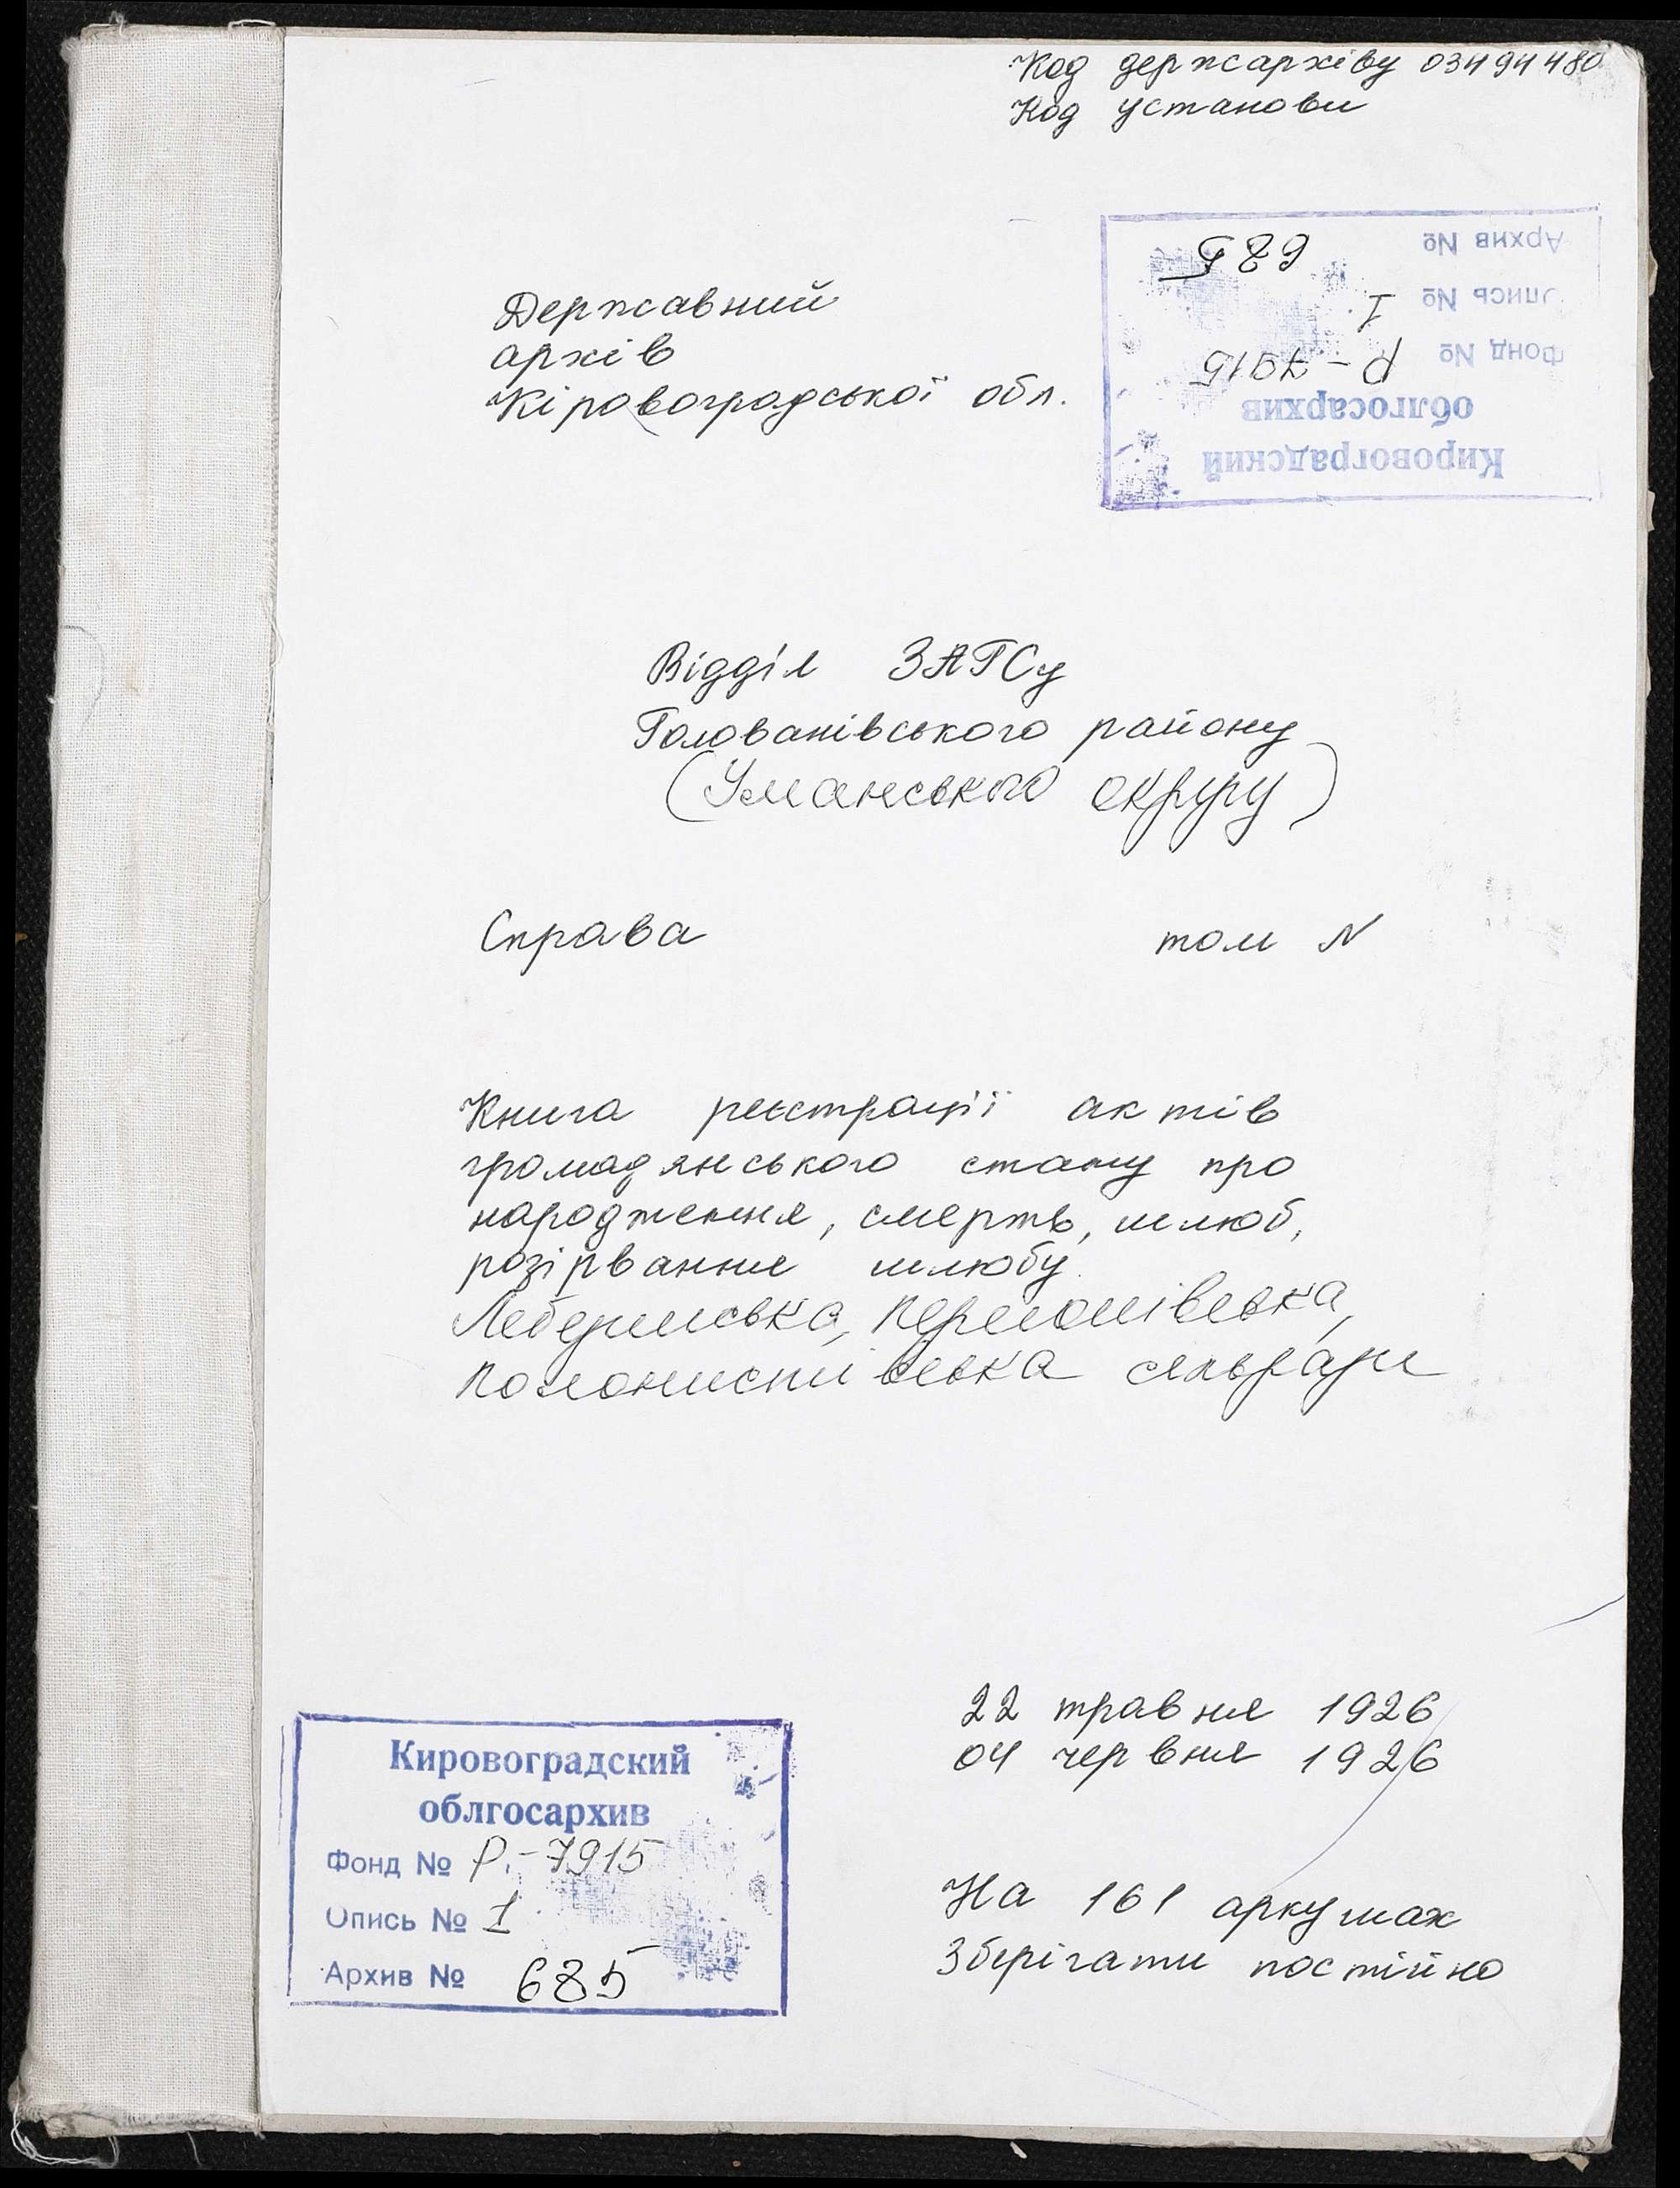 Код держархіву 03494480
Код установи
Архив № 685
Опись № 1.
Фонд № Р-7915
облгосархив
Кировоградский
Державний
архів
Кіровоградської обл.
Відділ ЗАГСу
Голованівського району
(Уманського округу)
Справа том N
Книга реєстрації актів
громадянського стану про
народження, смерть, шлюб,
розірвання шлюбу.
Лебединська, Перегонівська,
Колонистівська сільради
22 травня 1926
04 червня 1926
Кировоградский
облгосархив
Фонд № Р.-7915
Опись № 1.
Архив № 685
На 161 аркушах
Зберігати постійно